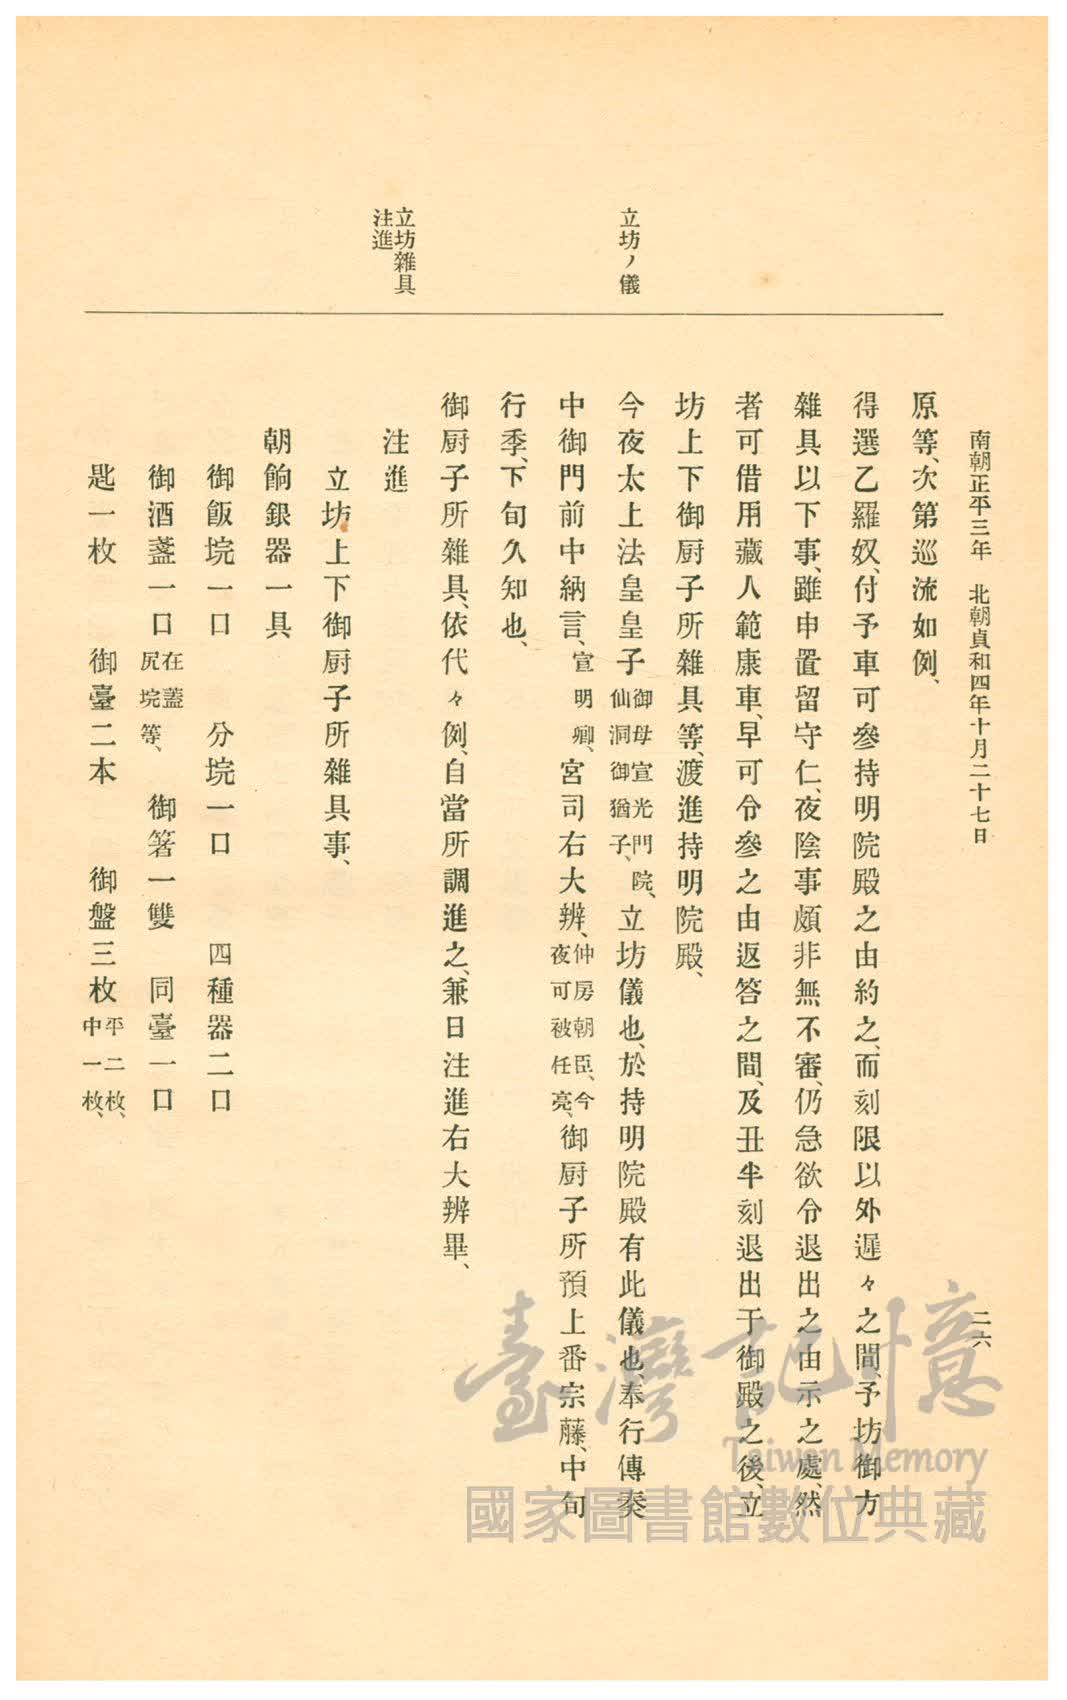 南朝正平三年　北朝貞和四年十月二十七日
二六
立坊ノ儀
立坊雜具
注進
原等、次第巡流如例、
得選乙羅奴、付予車可參持明院殿之由約之、而刻限以外遲々之間、予坊御方
雜具以下事、雖申置留守仁、夜陰事頗非無不審、仍急欲令退出之由示之處、然
者可借用藏人範康車、早可令參之由返答之間、及丑半刻退出于御殿之後、立
坊上下御厨子所雜具等、渡進持明院殿、
今夜太上法皇皇子御母宣光門院、仙洞御猶子、立坊儀也、於持明院殿有此儀也、奉行傳奏
中御門前中納言、宣明卿、宮司右大辨、仲房朝臣、今夜可被任亮、御厨子所預上番宗藤、中旬
行季、下旬久知也、
御厨子所雜具、依代々例、自當所調進之、兼日注進右大辨畢、
注進
立坊上下御厨子所雜具事、
朝餉銀器一具
御飯垸一口　分垸一口　四種器二口
御酒盞一口在蓋尻垸等、　御箸一雙　同臺一口
匙一枚　御臺二本　御盤三枚平二枚、中一枚、
臺灣記憶
Taiwan Memory
國家圖書館數位典藏